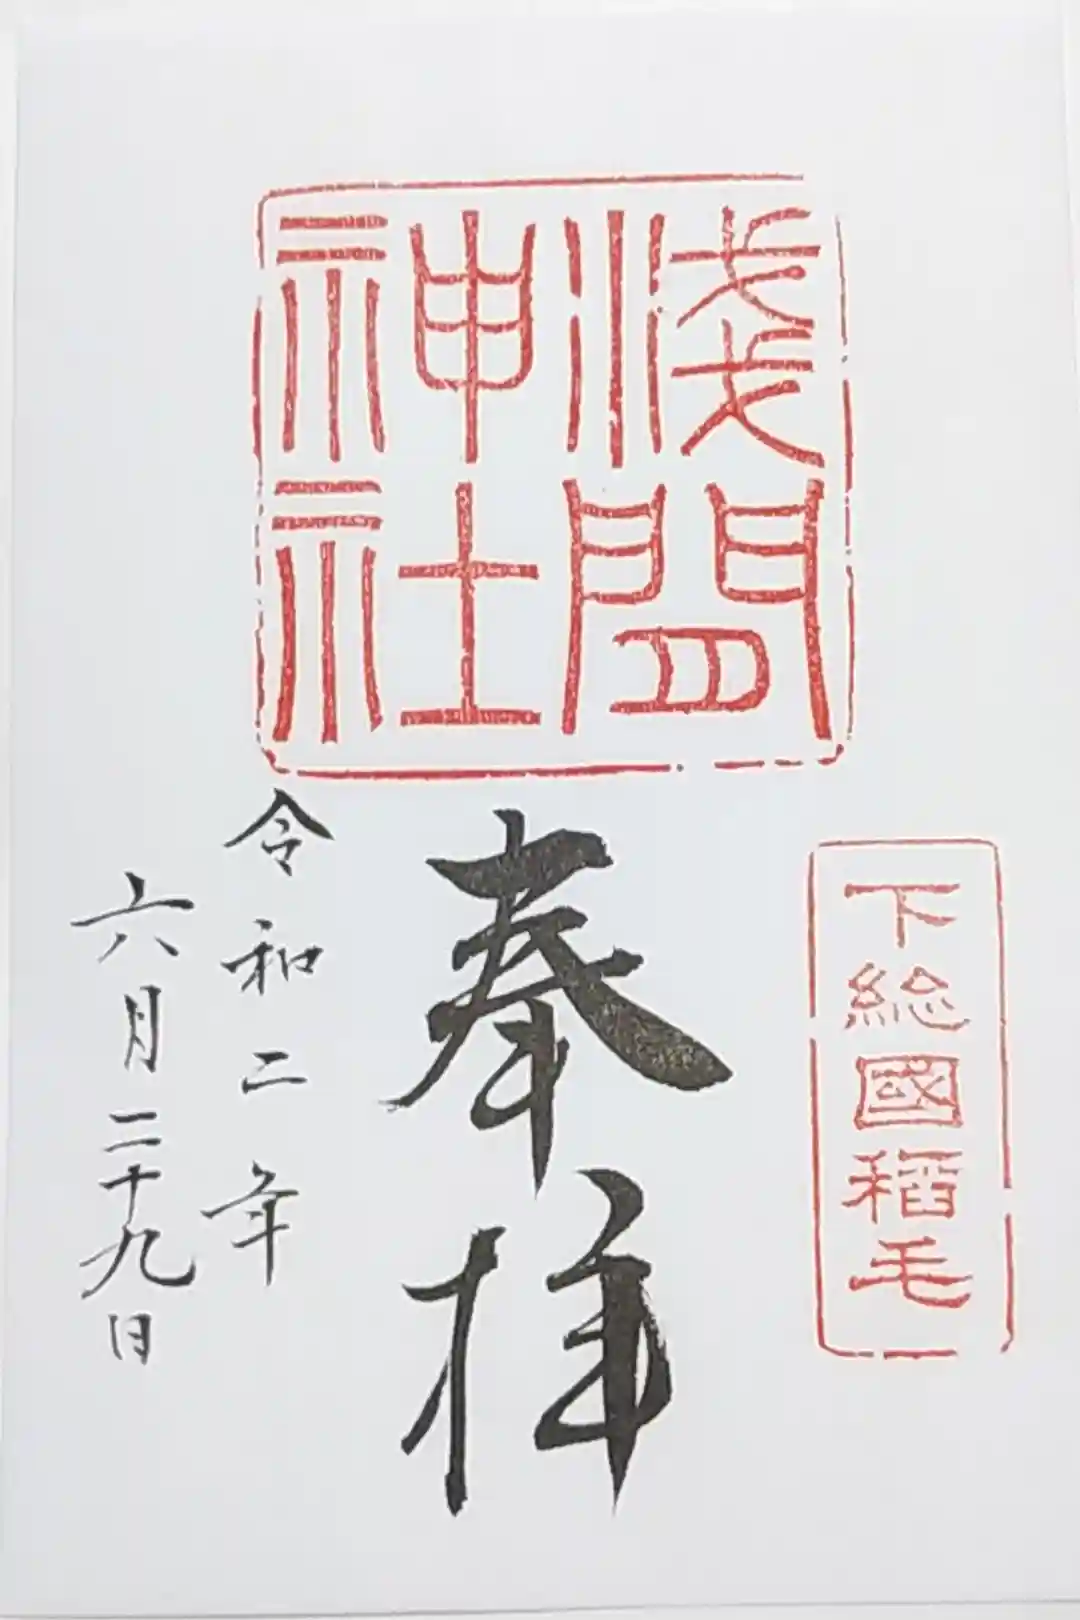 淺間
神社
下総國稲毛
奉拝
令和二年
六月二十九日